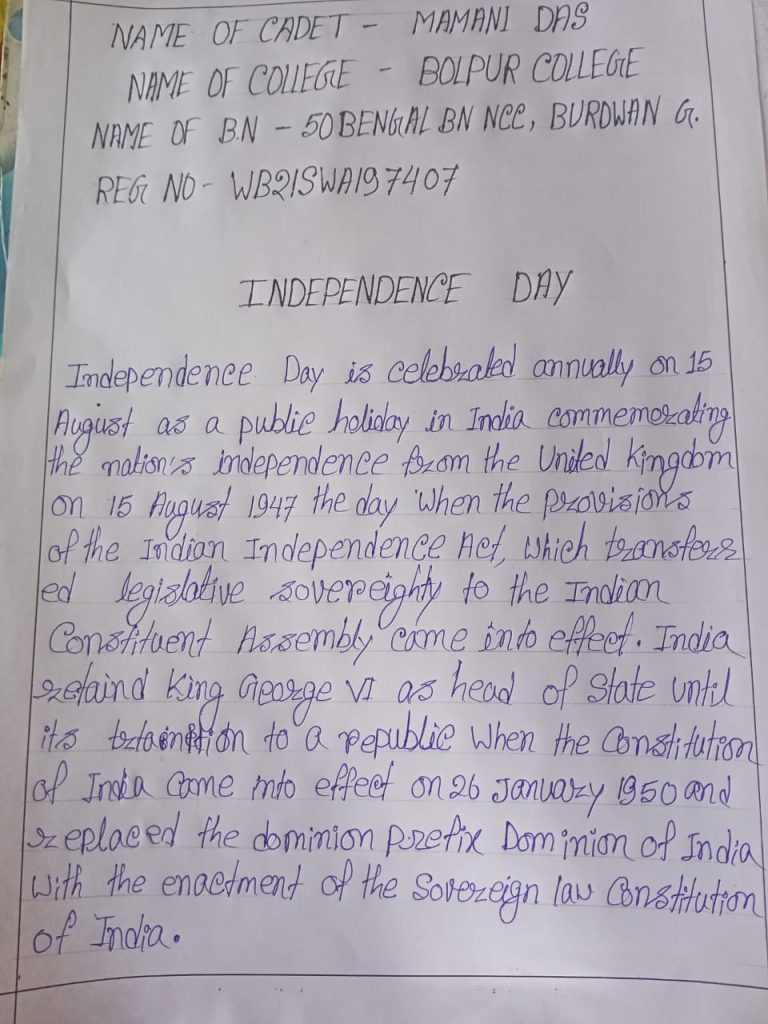 NAME OF CADET - MAMANI DAS
NAME OF COLLEGE - BOLPUR COLLEGE
NAME OF B.N - 50 BENGAL BN NCC, BURDWAN G.
REG NO - WB21SWA197407
INDEPENDENCE DAY
Independence Day is celebrated annually on 15
August as a public holiday in India commemorating
the nation's independence from the United Kingdom
on 15 August 1947 the day when the provisions
of the Indian Independence Act, which transferr
ed legislative sovereighty to the Indian
Constituent Assembly came into effect. India
retaind King George VI as head of State until
its to a republic when the Constitution
of India came into effect on 26 January 1950 and
replaced the dominion prefix Dominion of India
with the enactment of the Sovereign law Constitution
of India.